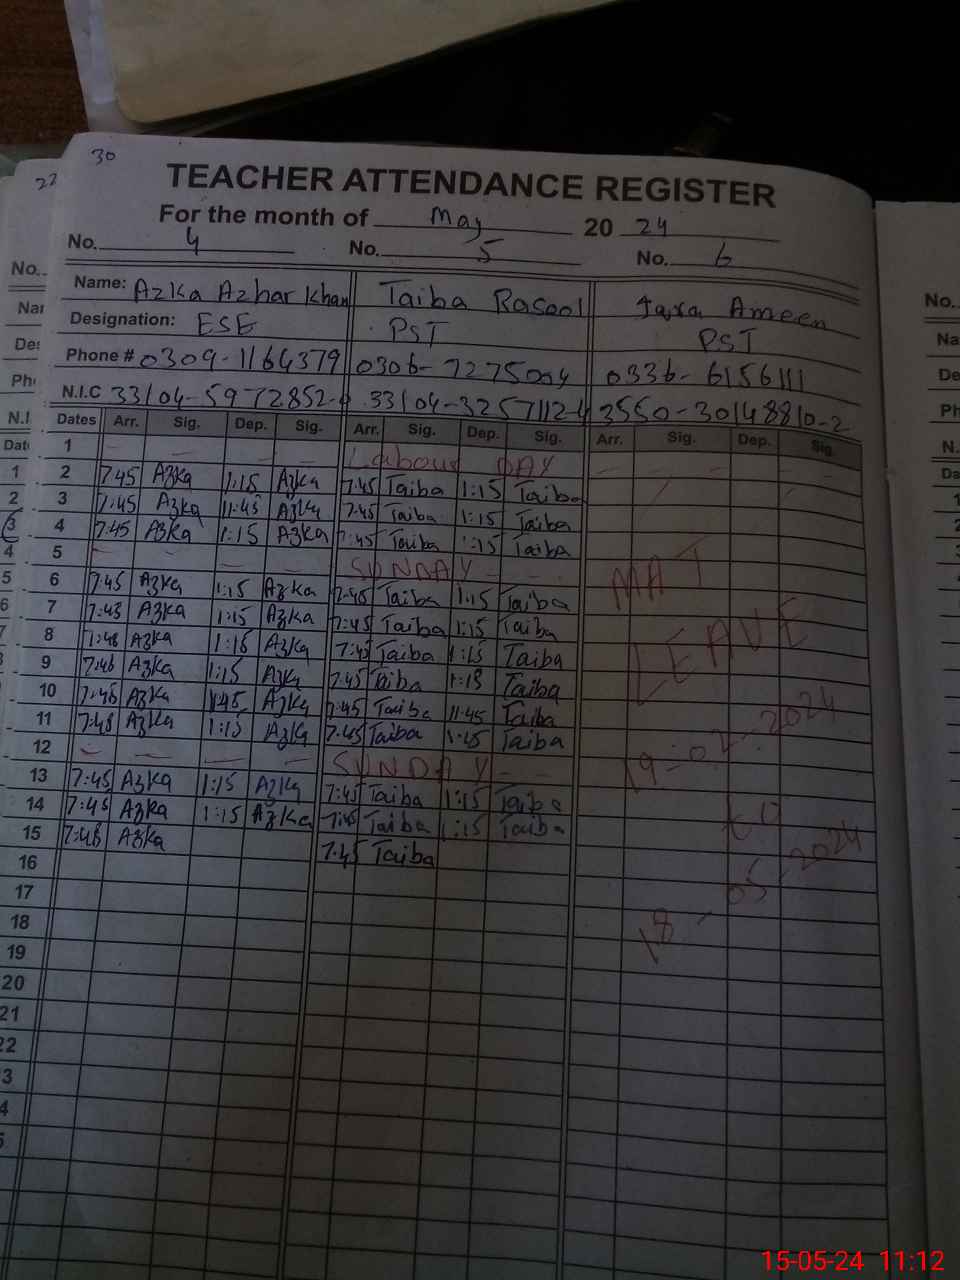 30
22
TEACHER ATTENDANCE REGISTER
For the month of May 20 24
No. 4 No. 5 No. 6
Name: Azka Azhar Khan Taiba Rasool Ameen
Designation: ESE PST PST
Phone # 0309-1164379 0306-7275004 0336-6156111
N.I.C 33104-5972852-4 33104-3257112-4 3550-30148810-2
Dates Arr. Sig. Dep. Sig. Arr. Sig. Dep. Sig. Arr. Sig. Dep. Sig.
1 — — — — Labour DAY
2 7:45 Azka 1:15 Azka 7:45 Taiba 1:15 Taiba
3 7:45 Azka 11:45 Azka 7:45 Taiba 1:15 Taiba
4 7:45 Azka 1:15 Azka 7:45 Taiba 1:15 Taiba
5 — — — SUNDAY - -
6 7:45 Azka 1:15 Azka 7:45 Taiba 1:15 Taiba
7 7:45 Azka 1:15 Azka 7:45 Taiba 1:15 Taiba
8 7:48 Azka 1:15 Azka 7:45 Taiba 1:15 Taiba
9 7:46 Azka 1:15 Azka 7:45 Taiba 1:15 Taiba
10 7:46 Azka 11:45 Azka 7:45 Taiba 11:45 Taiba
11 7:48 Azka 1:15 Azka 7:45 Taiba 1:45 Taiba
12 — — — — SUNDAY - -
13 7:45 Azka 1:15 Azka 7:45 Taiba 1:15 Taiba
14 7:45 Azka 1:15 Azka 7:45 Taiba 1:15 Taiba
15 7:48 Azka 7:45 Taiba
16
17
18
19
20
21
MAT
LEAVE
19-02-2024
to
18-05-2024
15-05-24 11:12